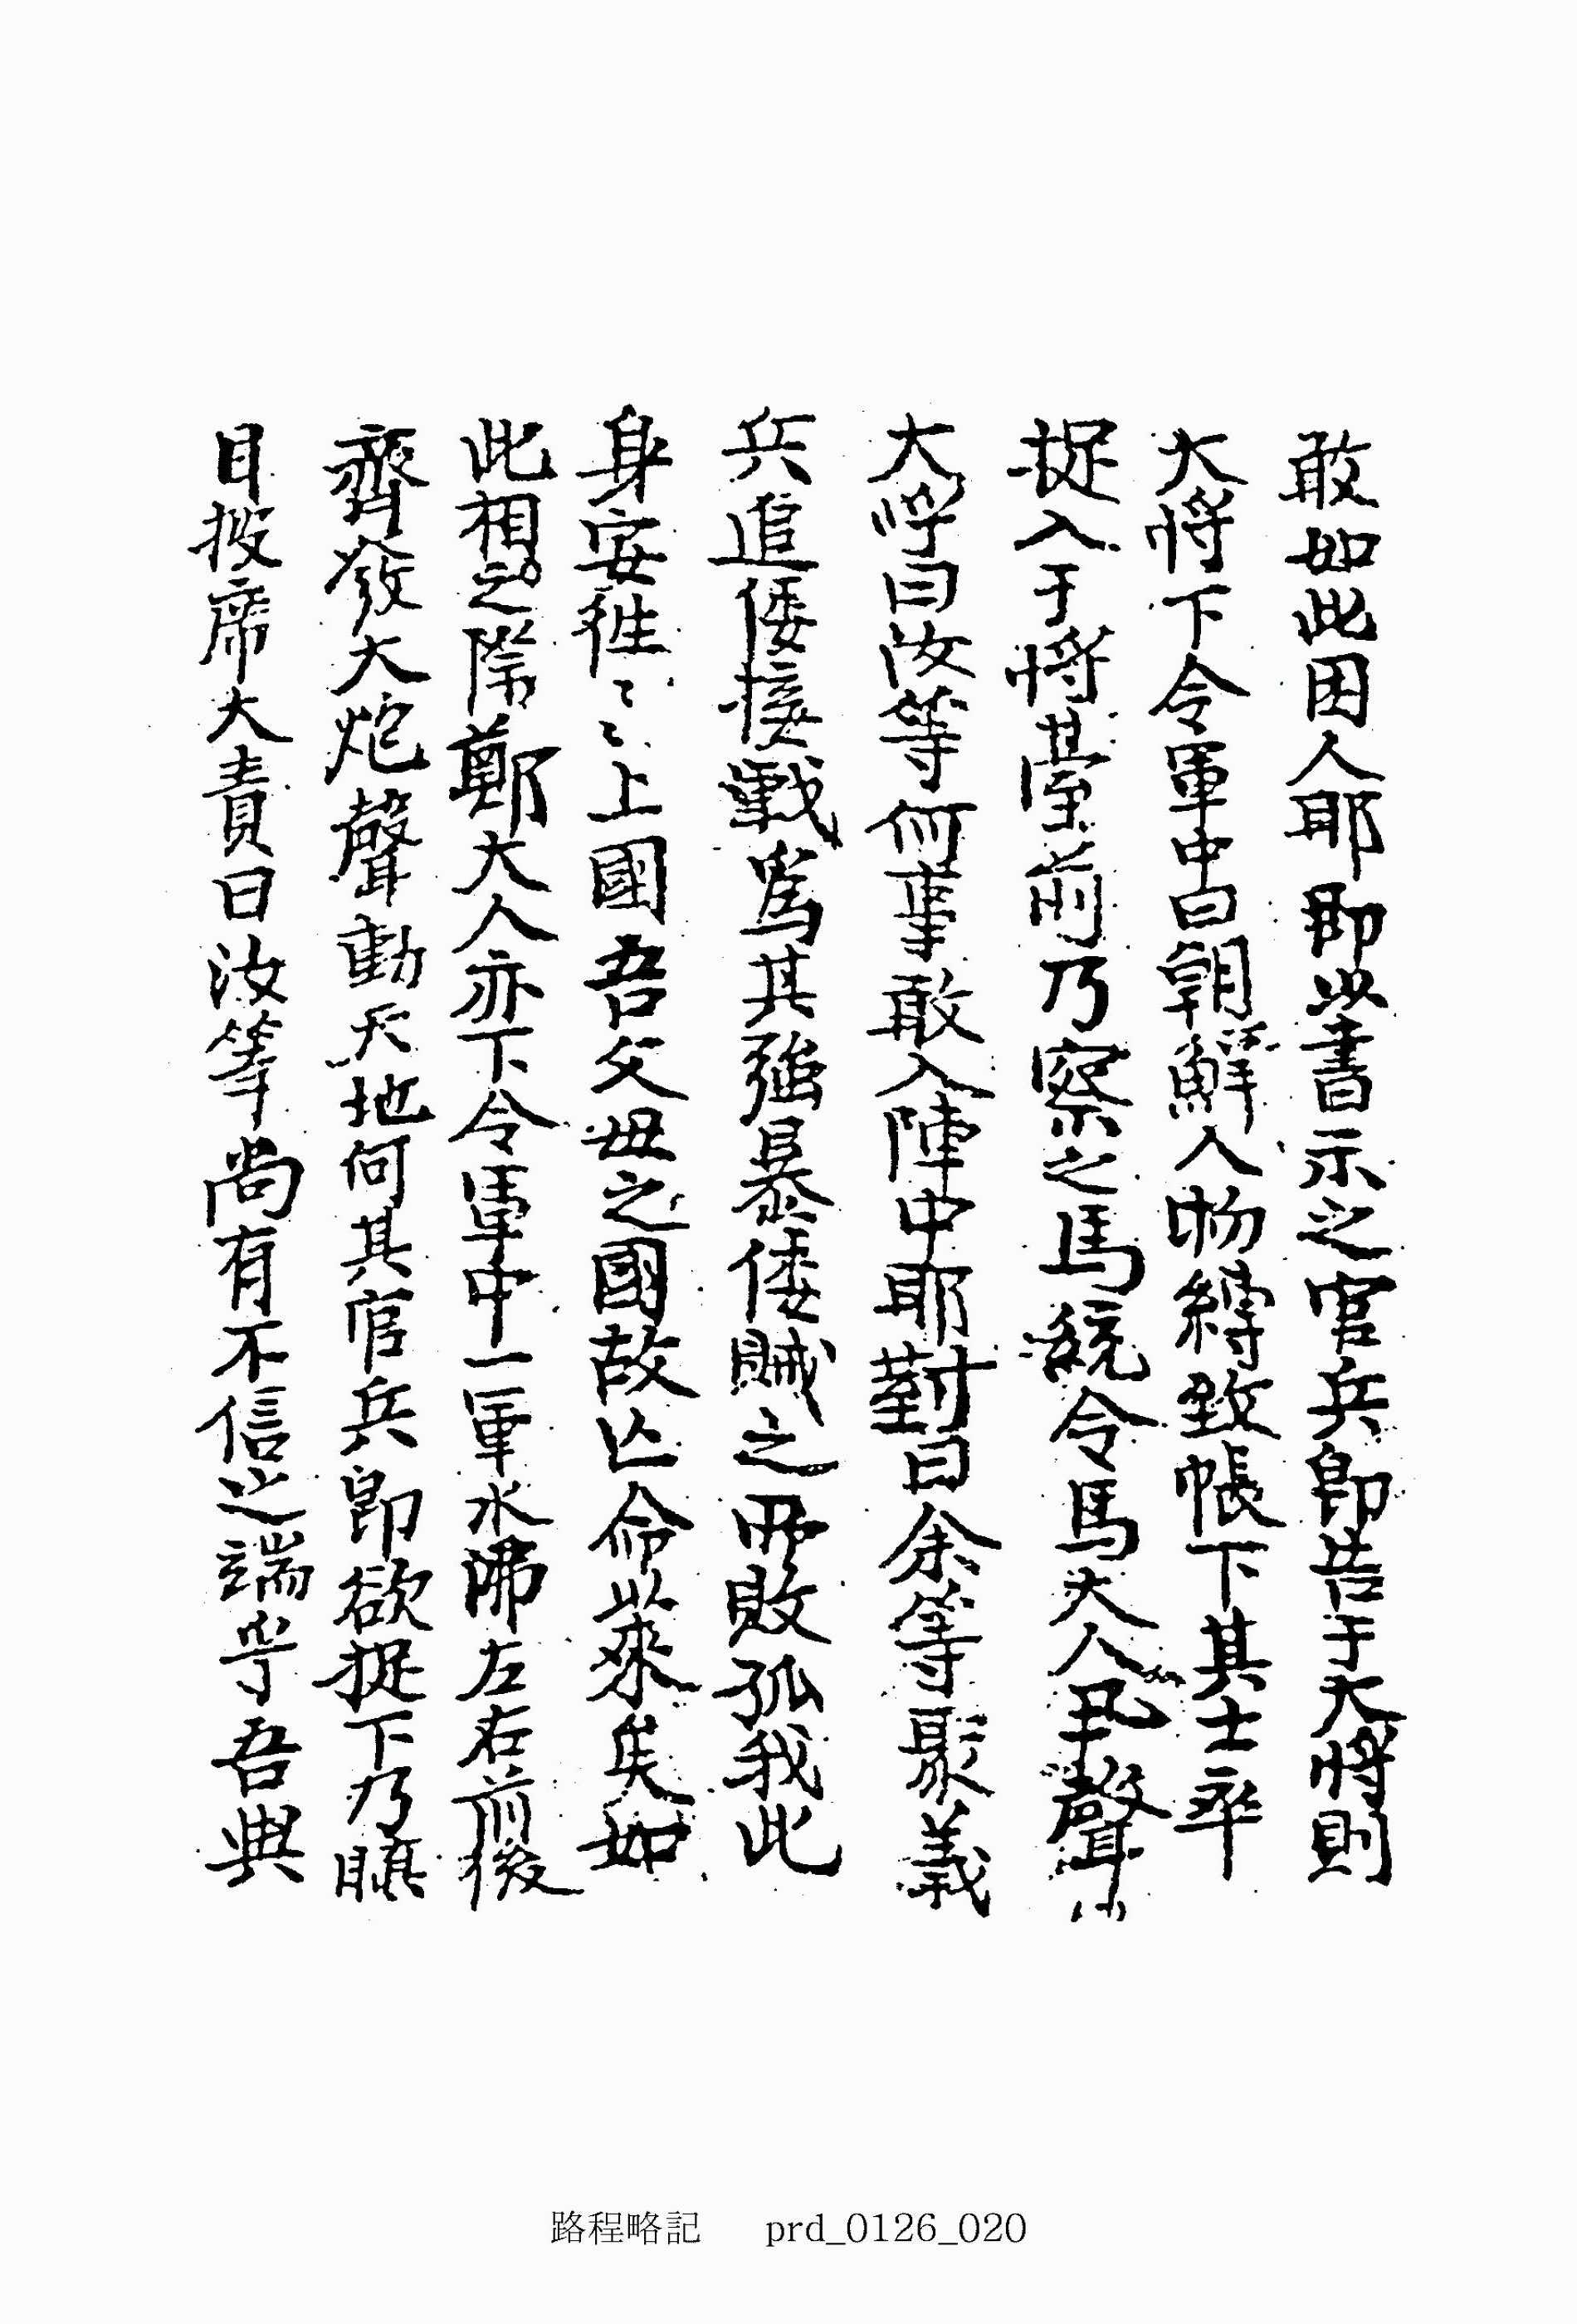 敢如此困人耶即以書示之官兵卽告于大將則
大將下令軍中曰朝鮮人物縛致帳下其士卒
捉入于將臺前乃察之馬統令馬大人丮聲
大呼曰汝等何事敢入陣中耶對曰余等聚義
兵追倭接戰爲其強暴倭賊之所敗孤我此
身安往〻〻上國吾父母之國故亡命以來矣如
此相之際鄭大人亦下令軍中一軍水沸左右前後
齊發大炮聲動天地何其官兵卽欲捉下乃瞋
目披席大責曰汝等尚有不信之端乎吾與
路程略記 prd_0126_020